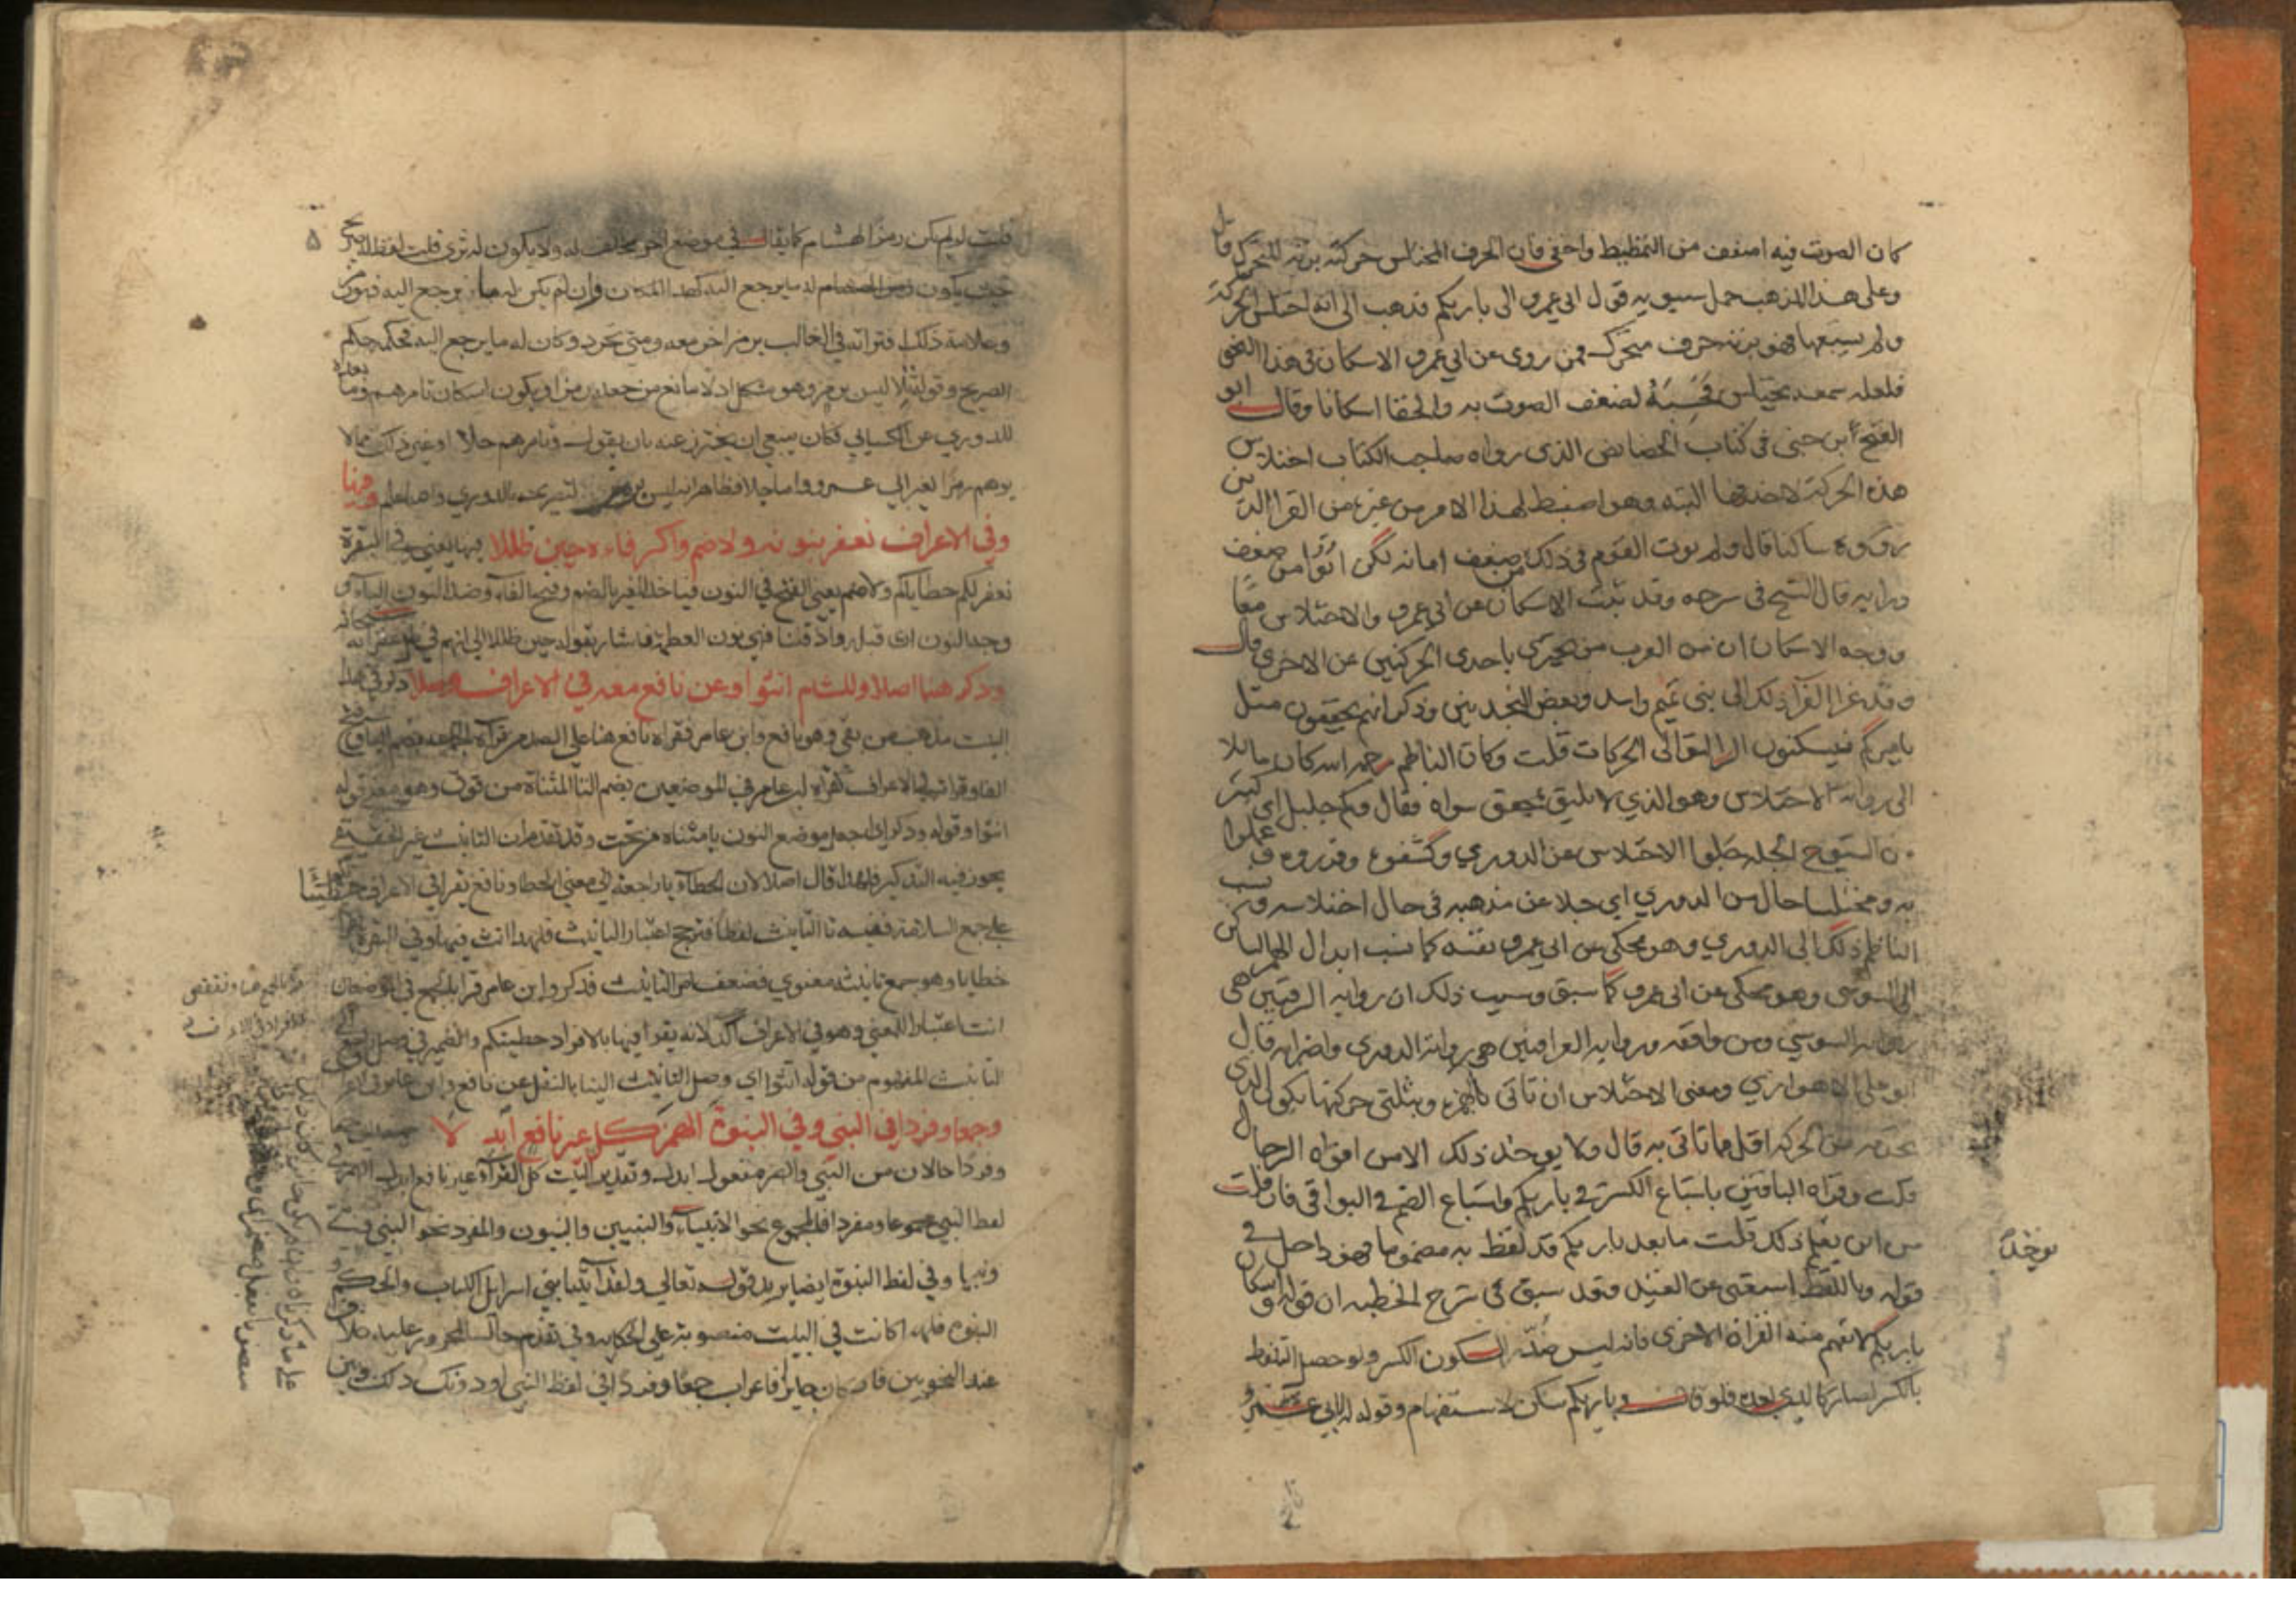 كان الصوت فيه اضعف من التمطيط واخفى فان الحرف المختلس حركته بزنة المتحرك قال
وعلى هذا المذهب حمل سيبويه قول ابي عمرو الى باريكم فذهب الى انه اختلس الحركة
ولم يشبعها فهو بزنة حرف متحرك فمن روى عن ابي عمرو الاسكان في هذا النحو
فلعله سمعه يختلس فحسبه لضعف الصوت به والخفا اسكانا وقال ابو
الفتح ابن جنى في كتاب الخصائص الذي رواه صاحب الكتاب اختلاس
هذه الحركة لا حذفها البته وهو اضبط لهذا الامر من غيره من القرا الذين
رووه ساكنا قال ولم يوت القوم في ذلك من ضعف امانه لكن اتوا من ضعف
دراية قال الشيخ في شرحه وقد ثبت الاسكان عن ابي عمرو والاختلاس معًا
ووجه الاسكان ان من العرب من يجتزي باحدى الحركتين عن الاخرى قال
وقد عزا الفرا ذلك الى بني تميم واسد وبعض النجديين وذكر انهم يخففون مثل
يامركم فيسكنون الرا لتوالي الحركات قلت وكان الناظم رحمه الله كان مايلا
الى رواية الاختلاس وهو الذي لا يليق بمحقق سواه فقال وكم جليل اي كثير
من الشيوخ الجلة جلوا الاختلاس عن الدوري وكشفوه وقرروه وعملوا
به ومختلسا حال من الدوري اي جلا عن مذهبه في حال اختلاسه ونسب
الناظم ذلك الى الدوري وهو محكي عن ابي عمرو نفسه كما نسب ابدال الهمز الساكن
الى السوسي وهو محكى عن ابي عمرو كما سبق وسبب ذلك ان رواية الرقيين هي
رواية السوسي ومن وافقه ورواية العراقيين هي رواية الدوري واضرابه قال
ابو علي الاهوازي ومعنى الاختلاس ان تاتي بالهمزة وبثلثي حركتها فيكون الذي
تحذفه من الحركة اقل مما تاتي به قال ولا يوخذ ذلك الا من افواه الرجال
قلت وقراة الباقين باشباع الكسر في باريكم واشباع الضم في البواقي فان قلت
من اين يعلم ذلك قلت ما بعد باريكم قد لفظ به مضموما فهو داخل في
قوله وباللفظ استغني عن القيد وقد سبق في شرح الخطبه ان قوله واسكان
باريكم لا تفهم منه القراة الاخرى فانه ليس ضد السكون الكسر ولو حصل التلفظ
بالكسر لصار كالذي بعده فلو قال وباريكم سكن لاستقام وقوله له اي لابي عمرو
يوخذ
قلت لو لم يكن رمزا لهشام كما يقال في موضع اخر يخالف له ولا يكون له ثوى قلت لفظ له صريح
حيث يكون له ما يرجع اليه كهذا المكان وان لم يكن له ما يرجع اليه فهو رمز
وعلامة ذلك اقترانه في الغالب برمز اخر معه ومتى تجرد وكان له ما يرجع اليه فحكمه حكم
الصريح وقوله تلا ليس برمز وهو مشكل اذ لا مانع من جعله رمزا ويكون اسكان تامرهم وما بعده
للدوري عن الكسائي فكان ينبغي ان يحترز عنه بان يقول وتامرهم حلا او غير ذلك مما لا
يوهم رمزا لغير ابي عمرو واما جلا فظاهر انه ليس برمز لتصريحه بالدوري والله اعلم وفيها
وفي الاعراف نغفر بنونه ولا ضم واكسر فاءه حين ظللا فيها يعني في البقرة
نغفر لكم خطاياكم ولا ضم يعني الفتح في النون فيتاخذ الغير بالضم وفتح الفاء وضد النون الياء و
وجه النون ان قبله واذ قلنا فهي نون العظمة فاشار بقوله حين ظللا الى انهم في ظل غفرانه سبحانه
وذكر هنا اصلا وللشام انثوا وعن نافع معه في الاعراف وصلا
البيت مذهب من بقي وهو نافع وابن عامر فقراة نافع هنا على الضد من قراة الجماعة بضم الياء وفتح
الفا وقراته في الاعراف كقراة ابن عامر في الموضعين بضم التا المثناة من فوق وهو معنى قوله
انثوا وقوله وذكر اي اجعل موضع النون يا مثناه من تحت وقد تقدم ان التانيث غير الحقيقي
يجوز فيه التذكير فلهذا قال اصلا لان الخطايا راجعة الى معنى الخطا ونافع يقرا في الاعراف خطيئات
على جمع السلامة ففيه تا التانيث لفظا فترجح اعتبار التانيث فلهذا انث فيها وفي البقرة
خطايا وهو جمع تانيثه معنوي فضعف امر التانيث فذكر وابن عامر قرا بالجمع في الموضعان
انث اعتبارا للمعنى وهو في الاعراف اكد لانه يقرا فيها بالافراد خطيئتكم والضمير في وصل يرجع الى
التانيث المفهوم من قوله انثوا اي وصل التانيث الينا بالنقل عن نافع وابن عامر
وجمعا وفردا في النبي وفي النبوة الهمز كل غير نافع ابدلا
وفردا حالان من النبي والهمز مفعول ابدل وتقدير البيت كل القراء غير نافع ابدل الهمز
لفظ النبي مجموعا ومفردا فالمجموع نحو الانبياء والنبيين والنبيون والمفرد نحو النبي
ونبيا وفي لفظ النبوة ايضا يريد قوله تعالى ولقد اتينا بني اسرائيل الكتاب والحكم
النبوة فلهذا كانت في البيت منصوبة على الحكاية وفي تقدم حال المجرور عليه خلاف
عند النحويين فان كان جايزا فاعراب جمعا وفردا في لفظ النبي او دونك ذلك